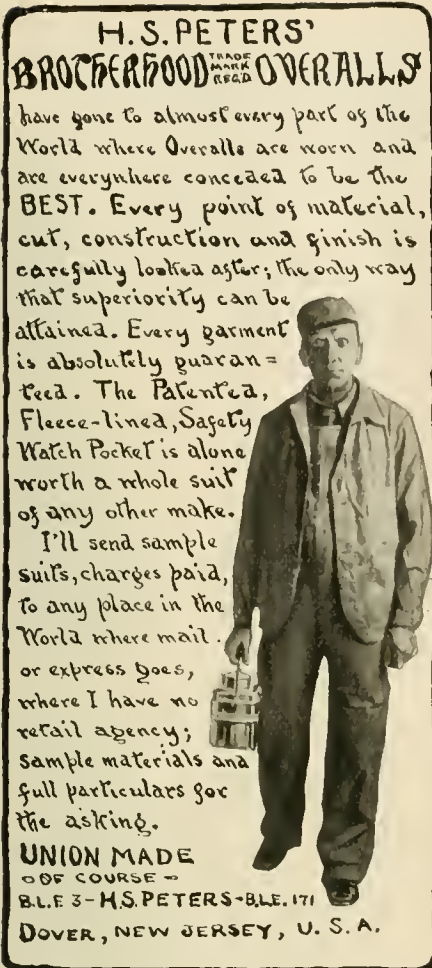 H.S. PETERS'
BROTHERHOOD TRADE MARK REG'D OVERALLS
have gone to almost every part of the
World where Overalls are worn and
are everywhere conceded to be the
BEST. Every point of material,
cut, construction and finish is
carefully looked after; the only way
that superiority can be
attained. Every garment
is absolutely guaran=
teed. The Patented,
Fleece-lined, Safety
Watch Pocket is alone
worth a whole suit
of any other make.
I'll send sample
suits, charges paid,
to any place in the
World where mail
or express goes,
where I have no
retail agency;
sample materials and
full particulars for
the asking.
UNION MADE
-OF COURSE-
B.L.F. 3-H.S. PETERS-B.L.E. 171
DOVER, NEW JERSEY, U.S.A.